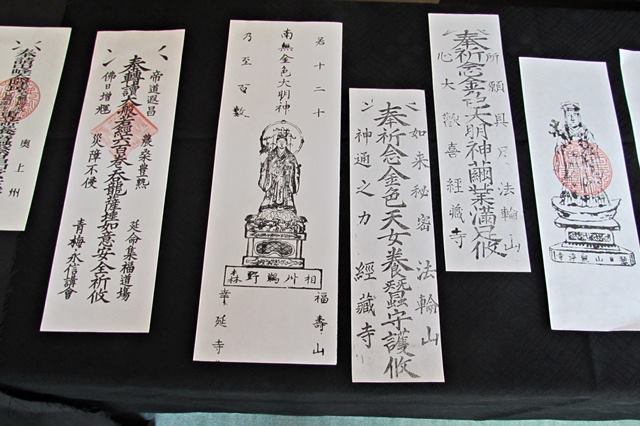 奥上州
帝道遐昌
佛日増輝
奉轉讀大般若經六百巻天龍護持如意安全祈攸
農桑豊熟
災障不侵
延命集福道場
青梅永信講會
若十二十
南無金色大明神
乃至百數
相州鵜野森
福壽山
幸延寺
如来秘密
神通之力
奉祈念金色天女養蠶守護攸
法輪山
經藏寺
所願具足
心大歡喜
奉祈念金色大明神繭業満足攸
法輪山
經藏寺